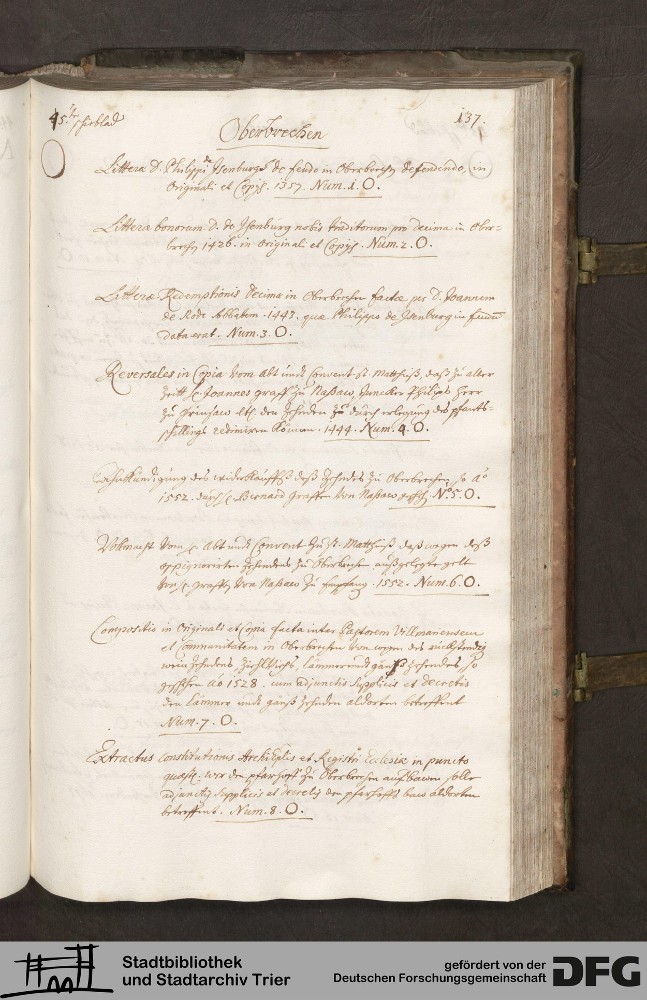 45.te schieblad
137.
Oberbrechen
Litteræ D. Philippi de Isenburgh de feudo in Oberbrechen defendendo, in
Originali et Copijs. 1357. Num. 1. O.
Litteræ bonorum D. de Isenburg nobis traditorum pro decima in Ober-
brechen 1426. in Originali et Copijs. Num. 2. O.
Litteræ Redemptionis decimæ in Oberbrechen factæ per D. Joannem
de Rode Abbatem. 1443. quæ Philippo de Isenburg in feudum
data erat. Num. 3. O.
Reversales in Copia vom Abt undt Convent St. Matthiaß, daß zu aller
Zeitt H. Joannes graff zu Naßaw, Juncker Philips Herr
zu Grinsaw etc. den Zehnden zu durch erlegung des pfandts-
schillings redimiren können. 1444. Num. 4. O.
des widerkauffs deß Zehndes zu Oberbrechen, so Ao
1552. durch H. Bernard graffen von Naßaw gescheh. No. 5. O.
Vollmacht vom H. Abt undt Convent zu St. Matthiaß daß wegen deß
oppignorirten Zehendens zu Oberbrechen außgelegte gelt
von H. graffen von Naßaw zu empfang. 1552. Num. 6. O.
Compositio in Originali et Copia facta inter Pastorem Villmariensem
et Communitatem in Oberbrechen von wegen des rückstendig
wein Zehndens, lämmer undt gänß Zehendes, so
geschehen Ao 1528. cum adjunctis Supplicis et decretis
den lämmer undt gänß Zehnden aldorten betreffent
Num. 7. O.
Extractus Constitutionis Archiepalis et Registri Ecclesiæ in puncto
quæst. wer den pfarhoff zu Oberbrechen auffbawen solle
adjunctis Supplicis et decretis den pfarhoffs baw aldorten
betreffent. Num. 8. O.
Stadtbibliothek
und Stadtarchiv Trier
gefördert von der
Deutschen Forschungsgemeinschaft
DFG